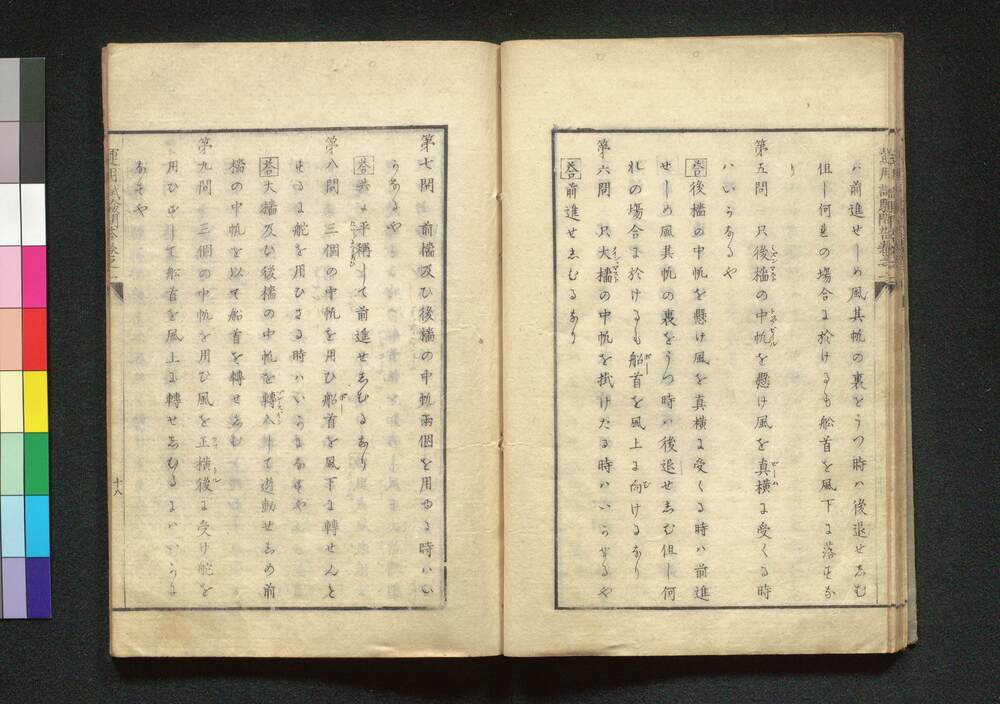 ハ前進せしめ風其帆の裏をうつ時ハ後退せしむ
但し何の場合に於けるも船首を風下に落すな
り
第五問 只後檣の中帆を懸け風を真横に受くる時
ハいかなるや
答 後檣の中帆を懸け風を真横に受くる時ハ前進
せしめ風其帆の裏をうつ時ハ後退せしむ但し何
れの場合に於けるも船首を風上に向けるなり
第六問 只大檣の中帆を掛けたる時ハいかなるや
答 前進せしむるなり
第七問 前檣及ひ後檣の中帆両個を用ゆる時ハい
かなるや
答 共に平稱して前進せしむるなり
第八問 三個の中帆を用ひ船首を風下に轉せんと
せるに舵を用ひさる時ハいかになすや
答 大檣及ひ後檣の中帆を轉入して遊動せしめ前
檣の中帆を以て船首を轉せしむ
第九問 三個の中帆を用ひ風を正横後に受け舵を
用ひすして船首を風上に轉せしむるにハいかに
なすや
十八